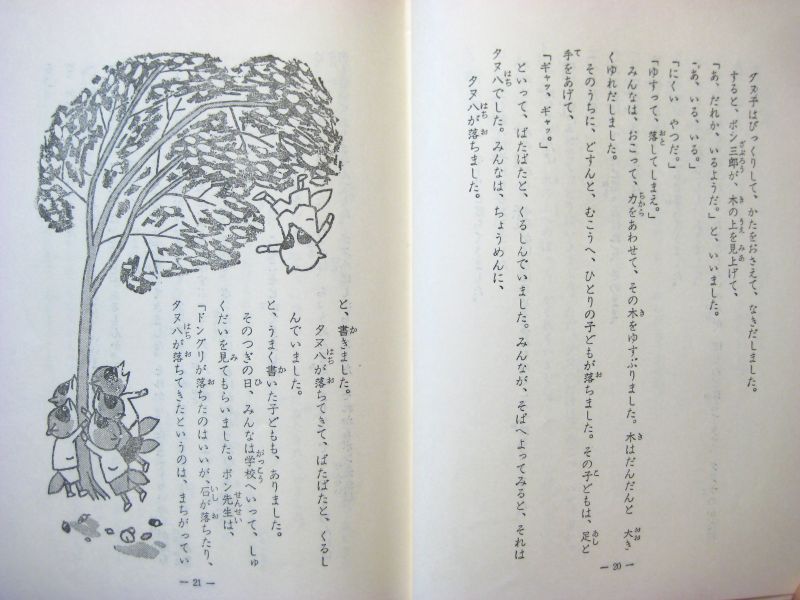 タヌ子はびっくりして、かたをおさえて、なきだしました。
すると、ポン三郎が、木の上を見上げて、
「あ、だれか、いるようだ。」と、いいました。
「あ、いる、いる。」
「にくい　やつだ。」
「ゆすって、落してしまえ。」
みんなは、おこって、力をあわせて、その木をゆすぶりました。木はだんだんと　大き
くゆれだしました。
そのうちに、どすんと、むこうへ、ひとりの子どもが落ちました。その子どもは、足と
手をあげて、
「ギャッ、ギャッ。」
といって、ばたばたと、くるしんでいました。みんなが、そばへよってみると、それは
タヌ八でした。みんなは、ちょうめんに、
タヌ八が落ちました。
— 20 —
と、書きました。
タヌ八が落ちてきて、ばたばたと、くるし
んでいました。
と、うまく書いた子どもも、ありました。
そのつぎの日、みんなは学校へいって、しゅ
くだいを見てもらいました。ポン先生は、
「ドングリが落ちたのはいいが、石が落ちたり、
タヌ八が落ちてきたというのは、まちがってい
— 21 —